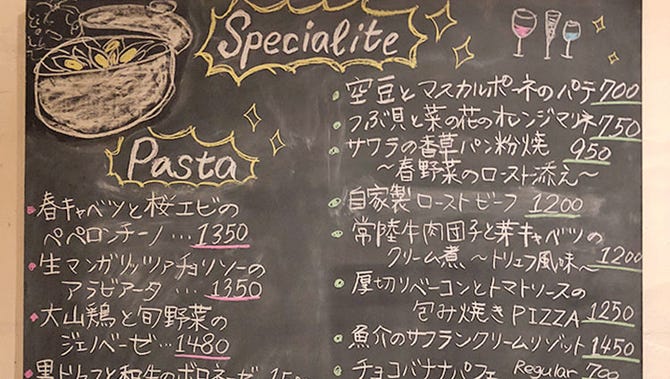 Specialite
Pasta
・春キャベツと桜エビの
ペペロンチーノ…1350
・生マンガリッツァチョリソーの
アラビアータ…1350
・大山鶏と旬野菜の
ジェノベーゼ…1480
黒トリュフと和牛のボロネーゼ
・空豆とマスカルポーネのパテ 700
・つぶ貝と菜の花のオレンジマリネ 750
・サワラの香草パン粉焼 950
～春野菜のロースト添え～
・自家製ローストビーフ 1200
・常陸牛肉団子と芽キャベツの
クリーム煮 ～トリュフ風味～ 1200
・厚切りベーコンとトマトソースの
包み焼きPIZZA 1250
・魚介のサフランクリームリゾット 1450
・チョコバナナパフェ Regular 700